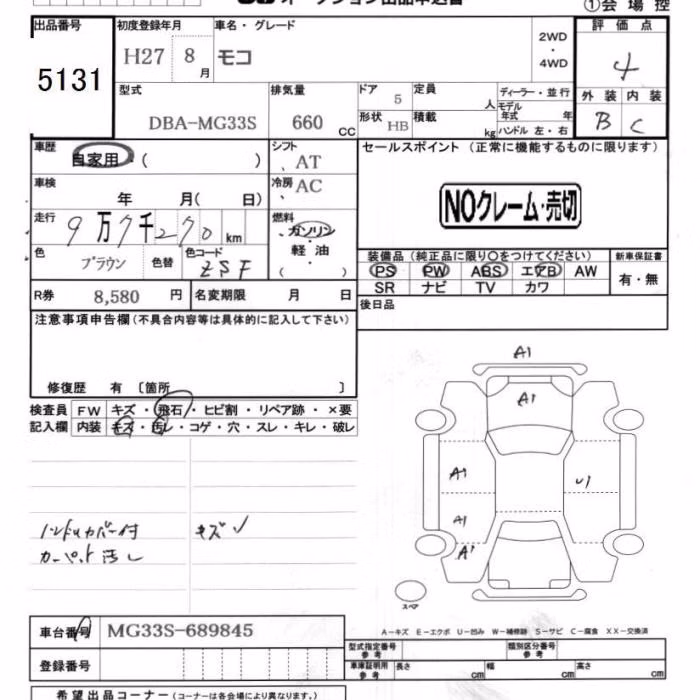 オークション出品申込書
①会場控
出品番号 初度登録年月 車名・グレード 評価点
5131 H27 8月 モコ 2WD・4WD 4
型式 排気量 ドア 定員 ディーラー・並行 外装 内装
DBA-MG33S 660 CC 5 人 モデル年式 年 B C
形状 HB 積載 kg ハンドル 左・右
車歴 シフト セールスポイント (正常に機能するものに限ります)
自家用・( ) AT
車検 冷房 AC NOクレーム・売切
年 月( 日)
走行 燃料
9万7千270 km ガソリン・軽油・( )
色 ブラウン 色替 色コード ZSF
装備品 (純正品に限り〇をつけてください) 新車保証書
PS PW ABS エアB AW 有・無
SR ナビ TV カワ
R券 8,580 円 名変期限 月 日 後日品
注意事項申告欄(不具合内容等は具体的に記入して下さい)
修復歴 有 〔箇所 〕
検査員 FW キズ・飛石・ヒビ割・リペア跡・×要
記入欄 内装 キズ・汚レ・コゲ・穴・スレ・キレ・破レ
A1
A1
A1 U1
A1
A1
ハンドルカバー付 キズ✓
カーペット汚し
スペア
A−キズ E−エクボ U−凹み W−補修跡 S−サビ C−腐食 XX−交換済
車台番号 MG33S-689845
型式指定番号 参考 類別区分番号 参考
登録番号 車庫証明用 参考 長さ cm 幅 cm 高さ cm
希望出品コーナー(コーナーは各会場により異なります。)